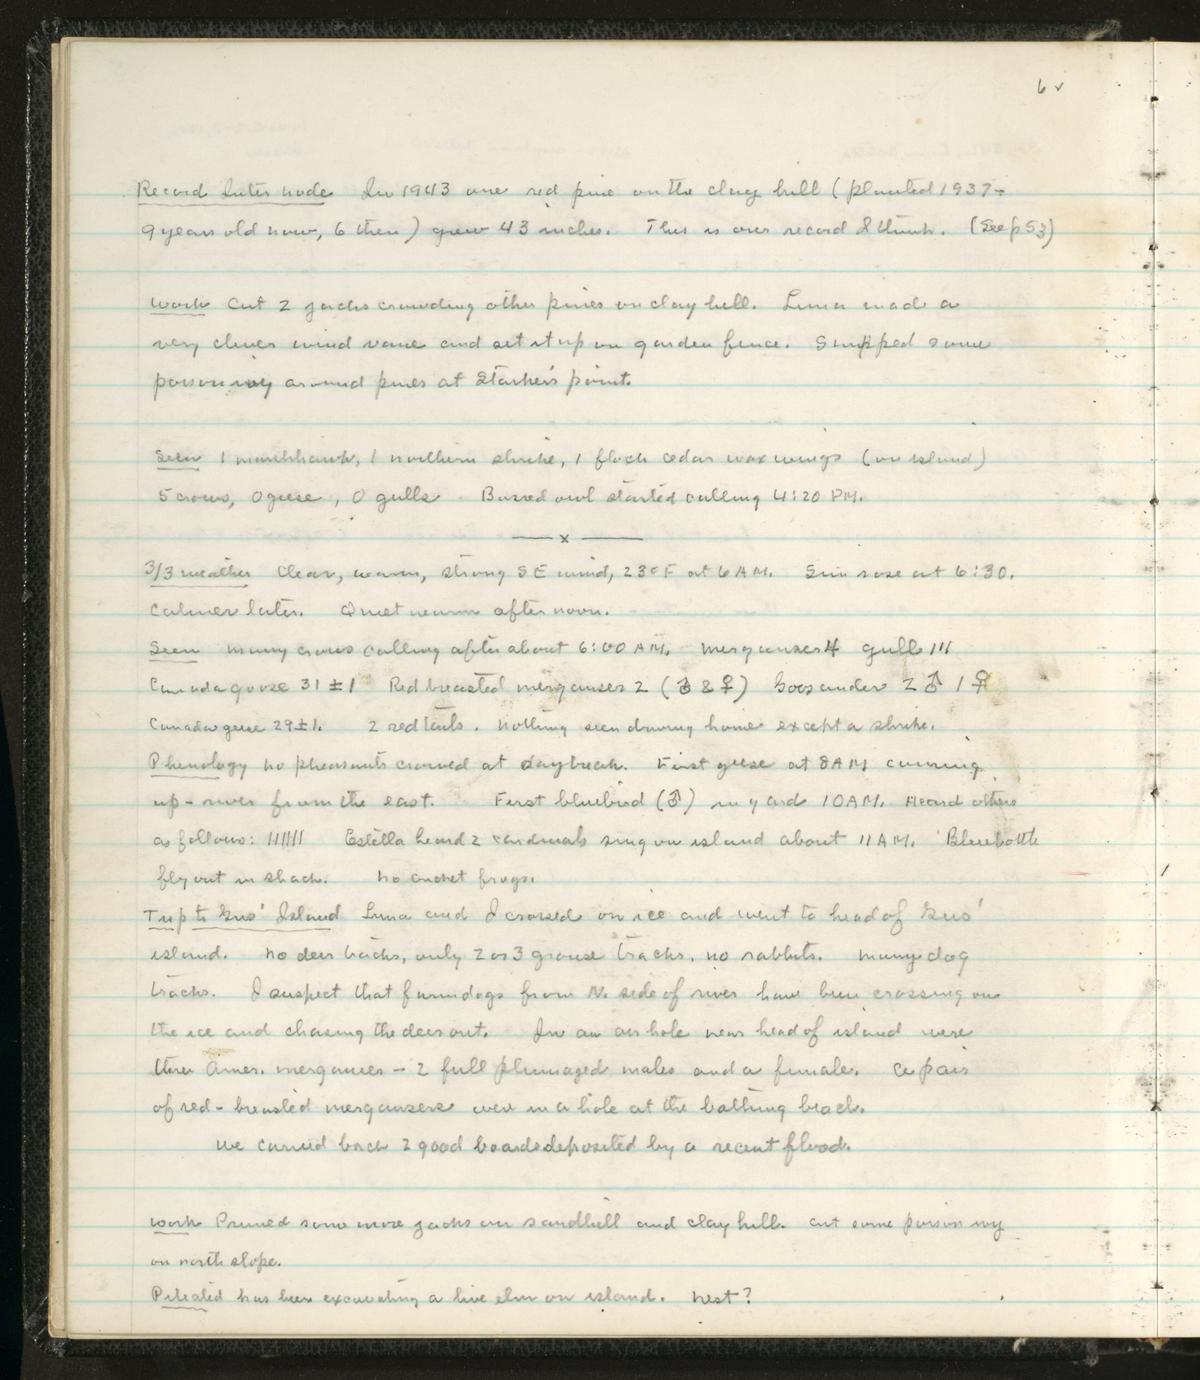 6 ✓
Record Internode In 1943 one red pine on the clay hill (planted 1937-
9 years old now, 6 then) grew 43 inches. This is our record I think. (See p 53)
Work Cut 2 jacks crowding other pines on clay hill. Luna made a
very clever wind vane and set it up on garden fence. Snipped some
poison ivy around pines at Starker's point.
Seen 1 marshhawk, 1 northern shrike, 1 flock cedar waxwings (on island)
5 crows, 0 geese, 0 gulls Barred owl started calling 4:20 PM.
x
3/3 Weather Clear, warm, strong SE wind, 23°F at 6 AM. Sun rose at 6:30.
Calmer later. Quiet warm afternoon.
Seen many crows calling after about 6:00 AM. merganser 4 gulls 111
Canada goose 31 ± 1 Red breasted merganser 2 (♂ & ♀) Goosander 2 ♂ 1 ♀
Canada geese 29±1. 2 redtails. Nothing seen driving home except a shrike.
Phenology No pheasants crowed at daybreak. First geese at 8AM coming
up-river from the east. First bluebird (♂) in yard 10AM. Heard others
as follows: 111111 Estella heard 2 cardinals sing on island about 11 AM. Bluebottle
fly out in shack. No cricket frogs.
Trip to Gus' Island Luna and I crossed on ice and went to head of Gus'
island. No deer tracks, only 2 or 3 grouse tracks, no rabbits. Many dog
tracks. I suspect that farm dogs from N. side of river have been crossing on
the ice and chasing the deer out. In an air hole near head of island were
three Amer. mergansers - 2 full plumaged males and a female. A pair
of red-breasted mergansers were in a hole at the bathing beach.
We carried back 2 good boards deposited by a recent flood.
Work Pruned some more jacks on sandhill and clay hill. Cut some poison ivy
on north slope.
Pileated has been excavating a live elm on island. Nest?